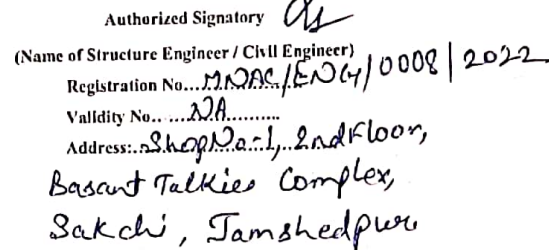 Authorized Signatory
(Name of Structure Engineer / Civil Engineer)
Registration No...MNAC/ENG/0008/2022
Validity No.. ....NA..........
Address:..Shop No-1, 2nd Floor,
Basant Talkies Complex,
Sakchi, Jamshedpur